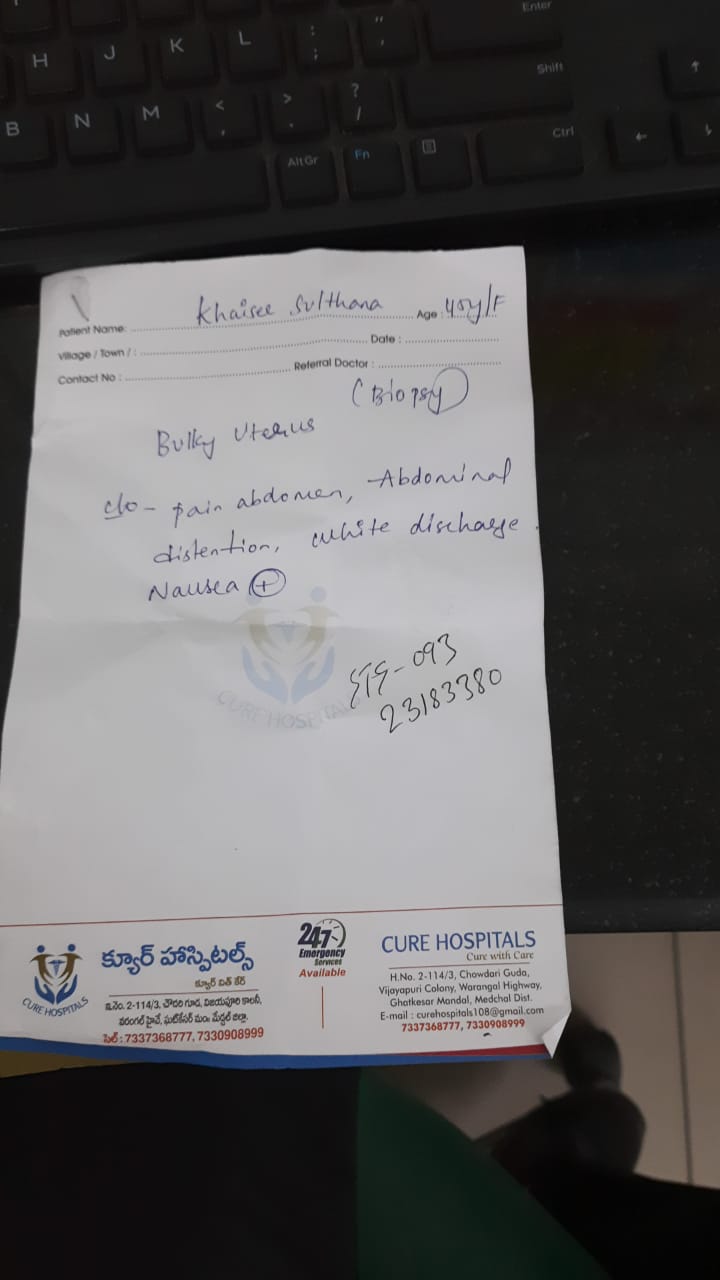 Enter
H J K L : ; " ,
Shift
B N M < , > . ? /
Ctrl
AltGr Fn
Patient Name: Khaisee Sulthana Age : 45y/F
Village / Town / : Date :
Contact No : Referral Doctor :
(Biopsy)
Bulky Uterus
c/o - pain abdomen, Abdominal
distention, white discharge.
Nausea +
-093
23183380
CURE HOSPITALS
క్యూర్ హాస్పిటల్స్
క్యూర్ విత్ కేర్
ఇ.నెం. 2-114/3, చౌదరి గూడ, విజయపురి కాలనీ,
వరంగల్ హైవే, ఘట్‌కేసర్ మం॥ మేడ్చల్ జిల్లా.
సెల్ : 7337368777, 7330908999
CURE HOSPITALS
24/7
Emergency
Services
Available
CURE HOSPITALS
Cure with Care
H.No. 2-114/3, Chowdari Guda,
Vijayapuri Colony, Warangal Highway,
Ghatkesar Mandal, Medchal Dist.
E-mail : curehospitals108@gmail.com
7337368777, 7330908999